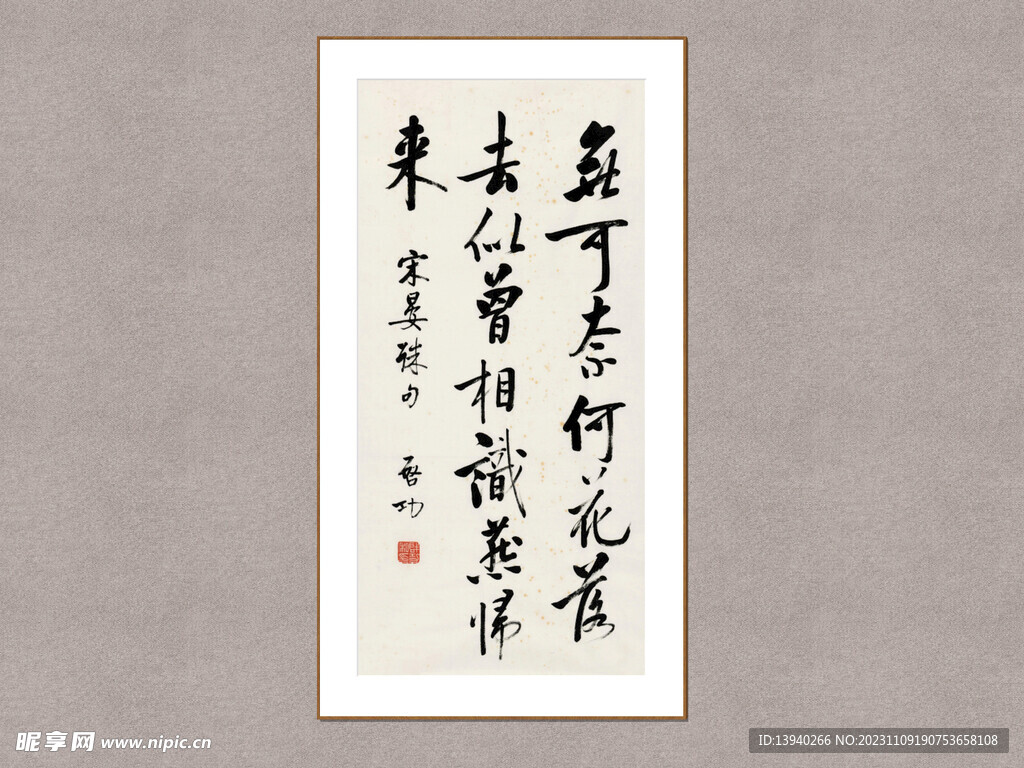 無可奈何花落
去似曾相識燕歸
来
宋晏殊句
啓功
昵享网 www.nipic.cn
ID:13940266 NO:20231109190753658108